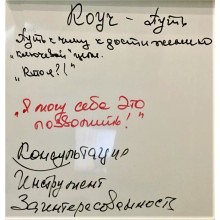 Коуч - Путь
Путь к чему к достижению
"ключевой" цели.
"Кто я?!"
"Я могу себе это
позволить!"
Консультация
Инструмент
Заинтересованность